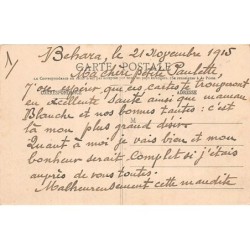 Behara, le 21 Novembre 1915
CARTE POSTALE
Ma chère petite Paulette,
J'ose espérer que ces cartes te trouveront
en excellente Santé ainsi que maman
Blanche et nos bonnes tantes : c'est
là mon plus grand désir.
Quant à moi je vais bien et mon
bonheur serait complet si j'étais
auprès de vous toutes.
Malheureusement cette maudite